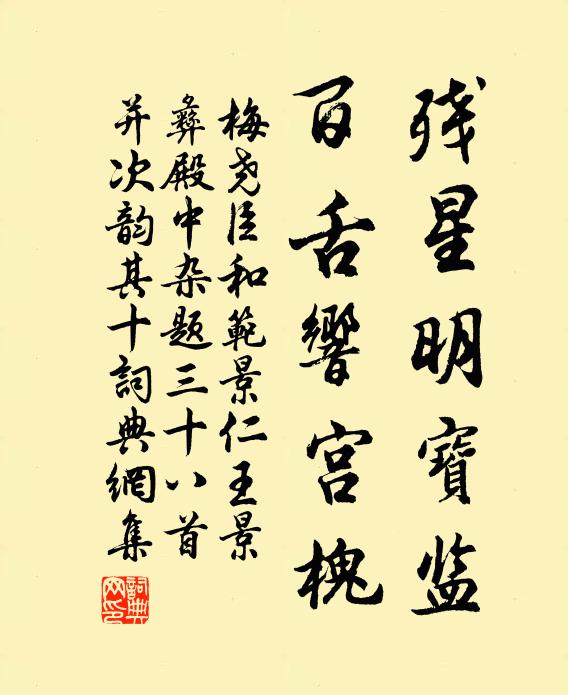 残星明寶监
百舌響宫槐
梅尧臣和範景仁王景
彝殿中杂题三十八首
并次韵其十詞典網集
詞典网印